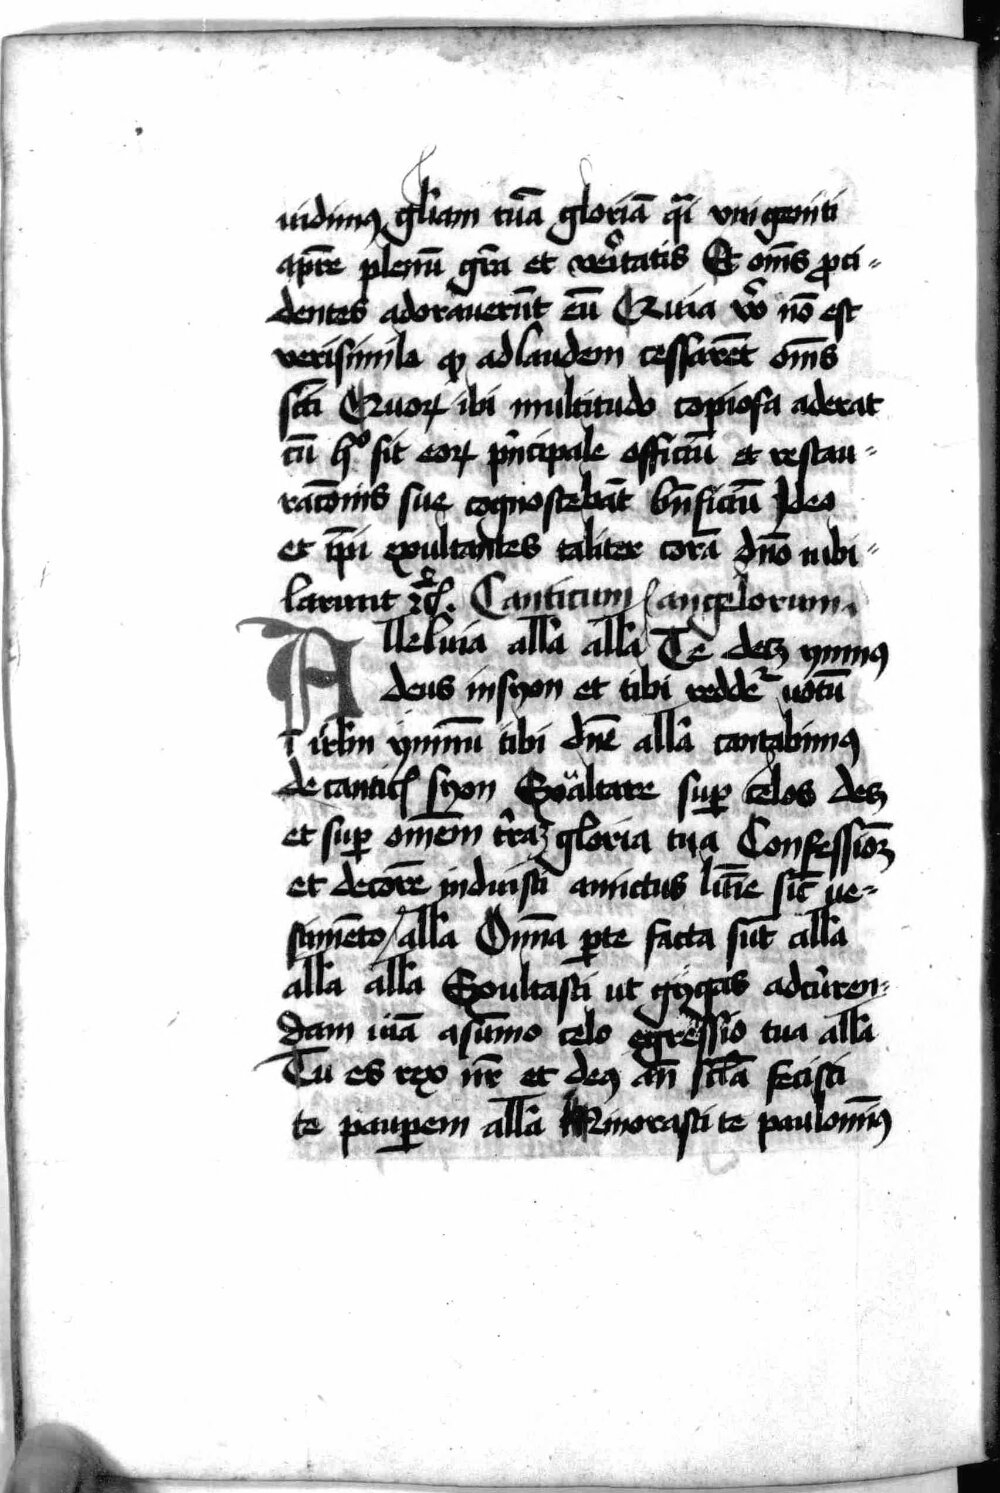 vidimꝰ gl̄iam tuā gloriā q̄i vnigeniti
a pr̄e plenū gr̄a et veritatis Et om̄s ꝓci-
dentes adorauerūt eū Quia v̄o nō est
verisimile ꝙ ad laudem cessarēt om̄s
sc̄i Quoꝝ ibi multitudo copiosa aderat
cū h̊ sit eoꝝ p̄ncipale officiū et restau-
racōnis sue cognoscebāt bn̄ficiū Ideo
et ip̄i exultantes taliter corā dn̄o iubi-
larunt Canticum angelorum
Alleluia all̄a all̄a Te decꝫ ymnꝰ
deus in syon et tibi reddeᷣ uotū
i irl̄m ymnū tibi dn̄e all̄a cantabimꝰ
de cantic̄ syon Exaltare suꝑ celos deꝰ
et suꝑ omēm t̄raꝫ gloria tua Confessiōꝫ
et decorē induisti amictus lum̄e sic̄ ue-
stimēto all̄a Om̄a ꝑ te facta sūt all̄a
all̄a all̄a Exultasti ut gygas ad cūren-
dam uiā a sūmo celo egressio tua all̄a
Tu es rex nr̄ et deꝰ an̄ sc̄la fecisti
te pauꝑem all̄a Minorasti te paulominꝰ